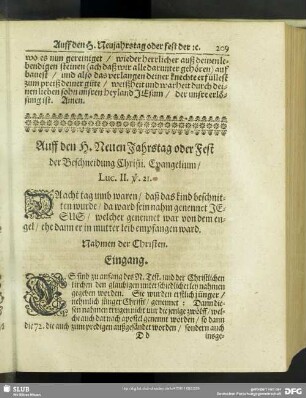 Auff den H. Neujahrstag oder fest der ꝛc. 209
wo es nun gereiniget / wieder herrlicher auß deinen le-
bendigen steinen (ach daß wir alle darunter gehören) auf
bauest / und also das verlangen deiner knechte erfüllest
zum preiß deiner güte / weißheit und warheit durch dei-
nen lieben sohn unsern heyland JEsum / der unser erlö-
sung ist. Amen.
Auff den H. Neuen Jahrstag oder Fest
der Beschneidung Christi. Evangelium /
Luc. II. ℣. 21.
DA acht tag umb waren / daß das kind beschnit-
ten wurde / da ward sein nahm genennet JE-
SUS / welcher genennet war von dem en-
gel / ehe dann er in mutter leib empfangen ward.
Nahmen der Christen.
Eingang.
ES sind zu anfang des N. Test. und der Christlichen
kirchen den glaubigen unterschiedliche nahmen
gegeben worden. Sie wurden erstlich jünger /
nehmlich jünger Christi / genennet: Dann die-
sen nahmen kriegen nicht nur die jenige zwölff / wel-
che auch darnach apostel genennt worden / so dann
die 72. die auch zum predigen außgesandet worden / sondern auch
D d insge-
SLUB
Wir führen Wissen.